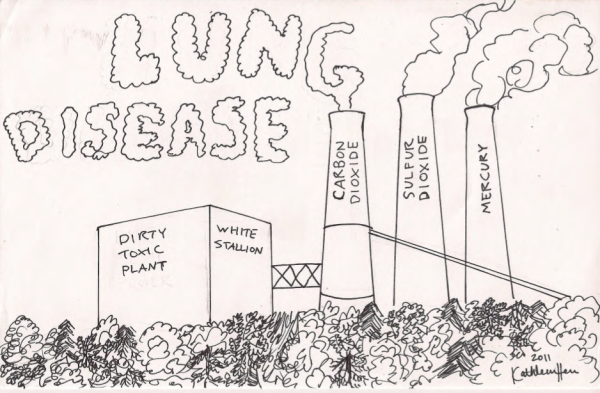 LUNG
DISEASE
CARBON
DIOXIDE
SULFUR
DIOXIDE
MERCURY
DIRTY
TOXIC
PLANT
WHITE
STALLION
2011